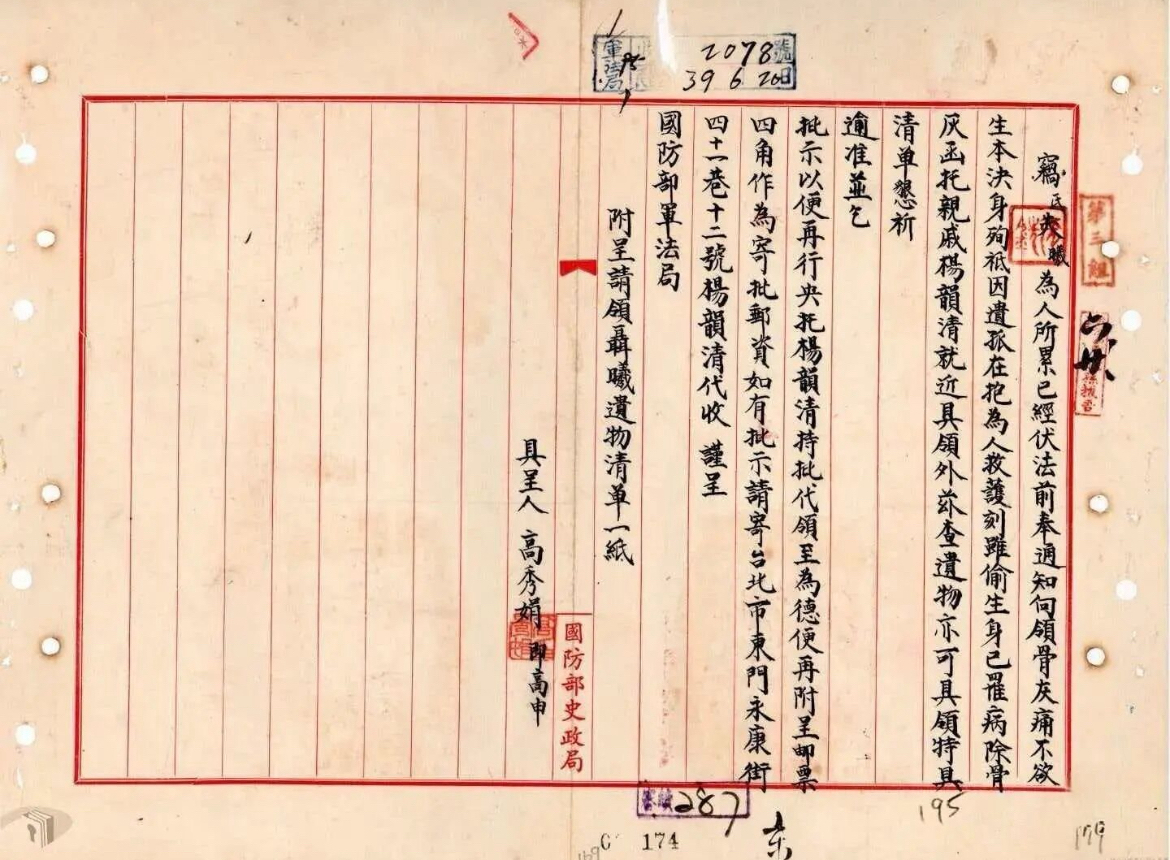 竊氏夫曦為人所累已經伏法前奉通知向領骨灰痛不欲
生本決身殉祗因遺孤在抱為人救護刻雖偷生身已罹病除骨
灰函托親戚楊韻清就近具領外茲查遺物亦可具領特具
清單懇祈
逾准並乞
批示以便再行央托楊韻清持批代領至為德便再附呈郵票
四角作為寄批郵資如有批示請寄台北市東門永康街
四十一巷十二號楊韻清代收 謹呈
國防部軍法局
附呈請領聶曦遺物清單一紙
具呈人 高秀娟 即高申
國防部史政局
第三組
軍法局
2078號
39 6 20日
287
195
179
174
169